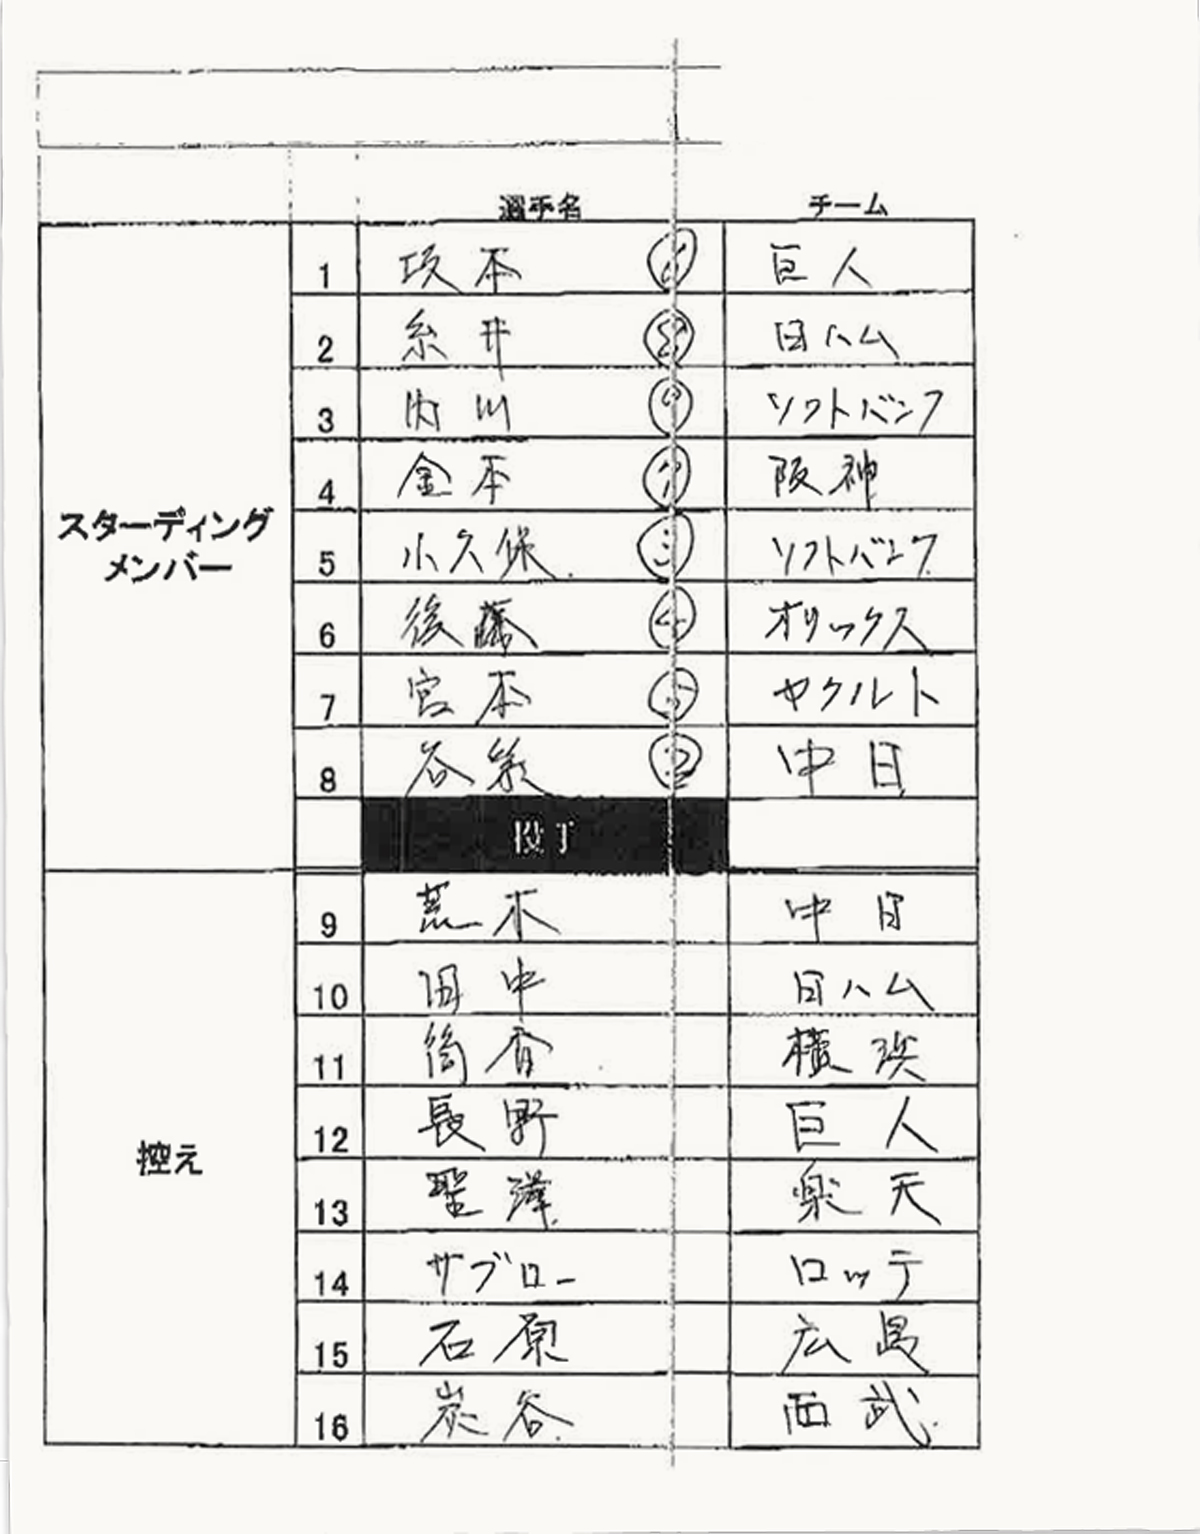 選手名 チーム
スターディング
メンバー
1 坂本 巨人
2 糸井 日ハム
3 内川 ソフトバンク
4 金本 阪神
5 小久保 ソフトバンク
6 後藤 オリックス
7 宮本 ヤクルト
8 谷繁 中日
控え
9 荒木 中日
10 田中 日ハム
11 筒香 横浜
12 長野 巨人
13 聖澤 楽天
14 サブロー ロッテ
15 石原 広島
16 炭谷 西武